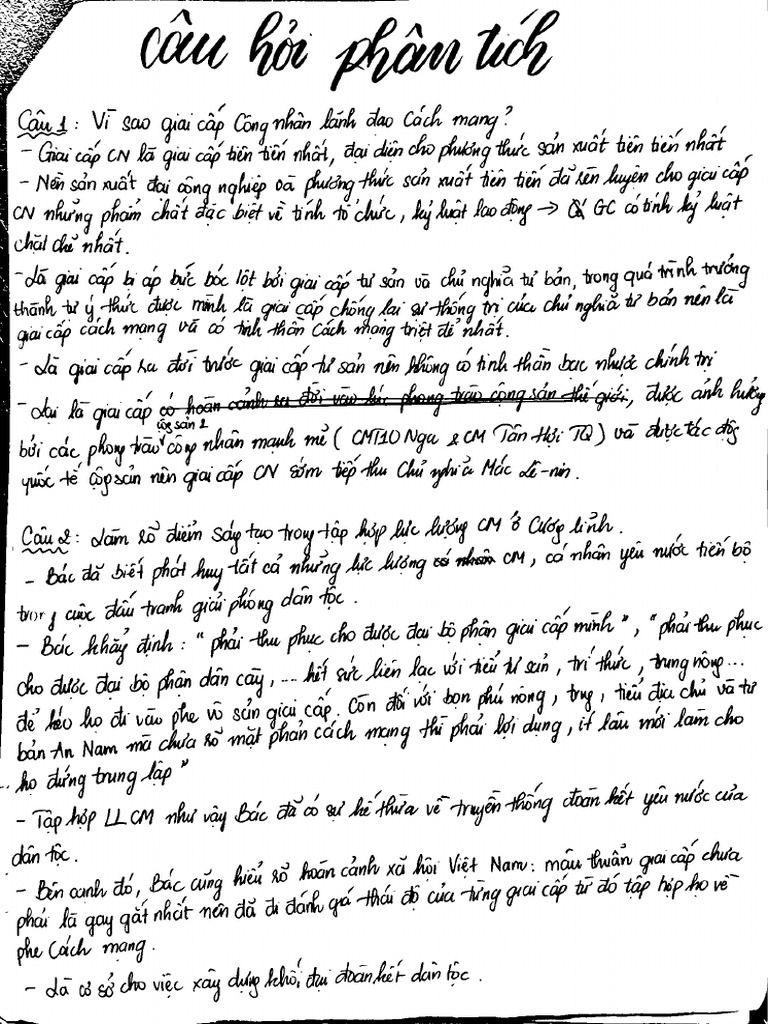 Câu hỏi phân tích
Câu 1: Vì sao giai cấp Công nhân lãnh đạo Cách mạng?
- Giai cấp CN là giai cấp tiên tiến nhất, đại diện cho phương thức sản xuất tiên tiến nhất
- Nền sản xuất đại công nghiệp và phương thức sản xuất tiên tiến đã rèn luyện cho giai cấp
CN những phẩm chất đặc biệt về tính tổ chức, kỷ luật lao động → GC có tính kỷ luật
chặt chẽ nhất.
- Là giai cấp bị áp bức bóc lột bởi giai cấp tư sản và chủ nghĩa tư bản, trong quá trình trưởng
thành tự ý thức được mình là giai cấp chống lại sự thống trị của chủ nghĩa tư bản nên là
giai cấp cách mạng và có tinh thần Cách mạng triệt để nhất.
- Là giai cấp ra đời trước giai cấp tư sản nên không có tinh thần bạc nhược chính trị
- Lại là giai cấp có hoàn cảnh ra đời vào lúc phong trào cộng sản thế giới, được ảnh hưởng
cộng sản &
bởi các phong trào công nhân mạnh mẽ ( CMT10 Nga & CM Tân Hợi TQ ) và được tác động
quốc tế cộng sản nên giai cấp CN sớm tiếp thu Chủ nghĩa Mác Lê-nin.
Câu 2: Làm rõ điểm sáng tạo trong tập hợp lực lượng CM ở Cương lĩnh.
- Bác đã biết phát huy tất cả những lực lượng CM, cá nhân yêu nước tiến bộ
trong cuộc đấu tranh giải phóng dân tộc.
- Bác khẳng định: " phải thu phục cho được đại bộ phận giai cấp mình ", " phải thu phục
cho được đại bộ phận dân cày, ... hết sức liên lạc với tiểu tư sản, trí thức, trung nông ...
để kéo họ đi vào phe vô sản giai cấp. Còn đối với bọn phú nông, trung, tiểu địa chủ và tư
bản An Nam mà chưa rõ mặt phản cách mạng thì phải lợi dụng, ít lâu mới làm cho
họ đứng trung lập "
- Tập hợp LLCM như vậy Bác đã có sự kế thừa về truyền thống đoàn kết yêu nước của
dân tộc.
- Bên cạnh đó, Bác cũng hiểu rõ hoàn cảnh xã hội Việt Nam: mâu thuẫn giai cấp chưa
phải là gay gắt nhất nên đã đi đánh giá thái độ của từng giai cấp từ đó tập hợp họ về
phe Cách mạng.
- Là cơ sở cho việc xây dựng khối đại đoàn kết dân tộc.